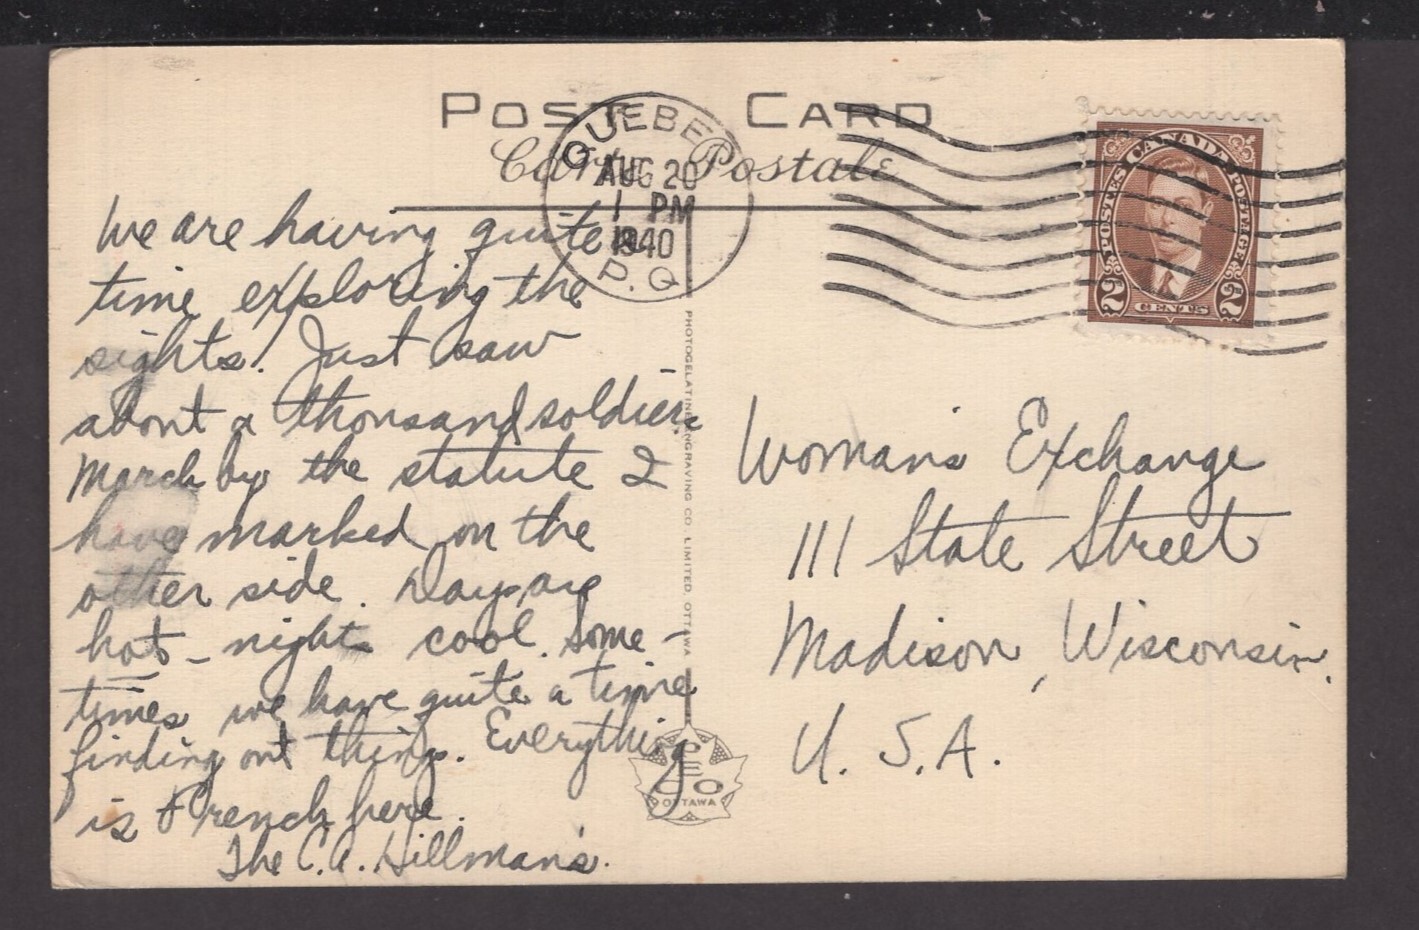 POST CARD
Carte Postale
QUEBEC
AUG 20
1 PM
1940
P.Q
CANADA
POSTES POSTAGE
2 CENTS 2
We are having quite a
time exploring the
sights. Just saw
about a thousand soldiers
march by the statute I
have marked on the
other side. Days are
hot - nights cool. Some-
times we have quite a time
finding out things. Everything
is French here.
The C.A. Hillman's.
PHOTOGELATINE ENGRAVING CO. LIMITED, OTTAWA
PECO
OTTAWA
Woman's Exchange
111 State Street
Madison, Wisconsin.
U. S. A.